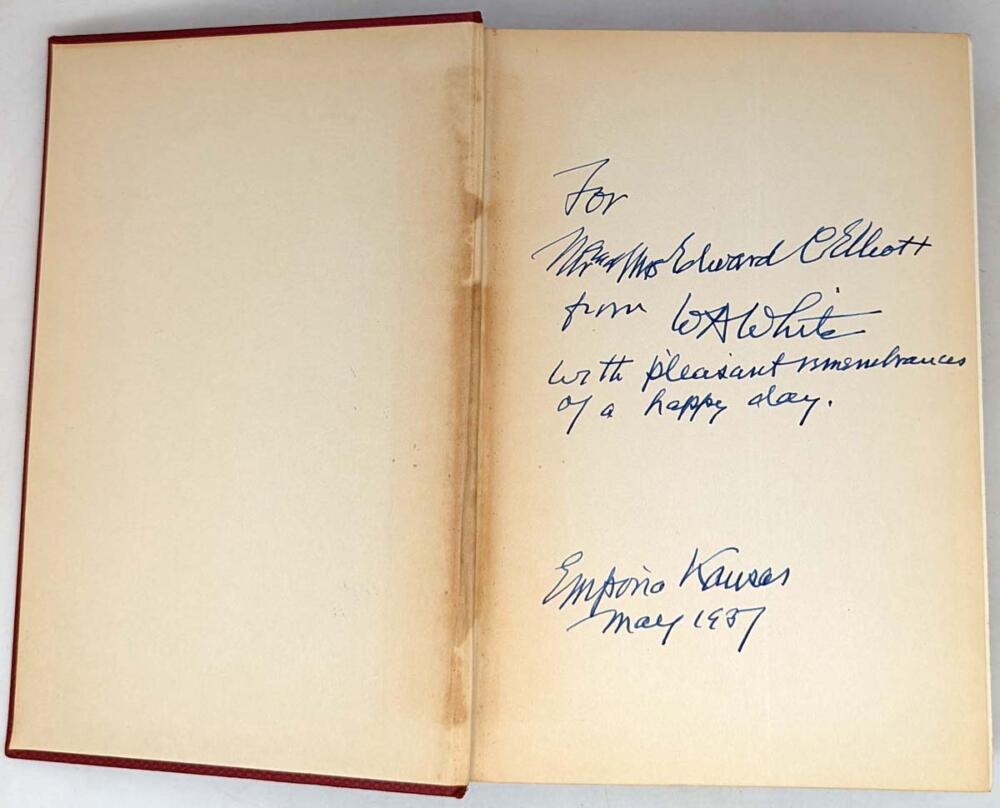 For
Mr and Mrs Edward C Elliott
from W A White
with pleasant remembrances
of a happy day.
Emporia Kansas
May 1937